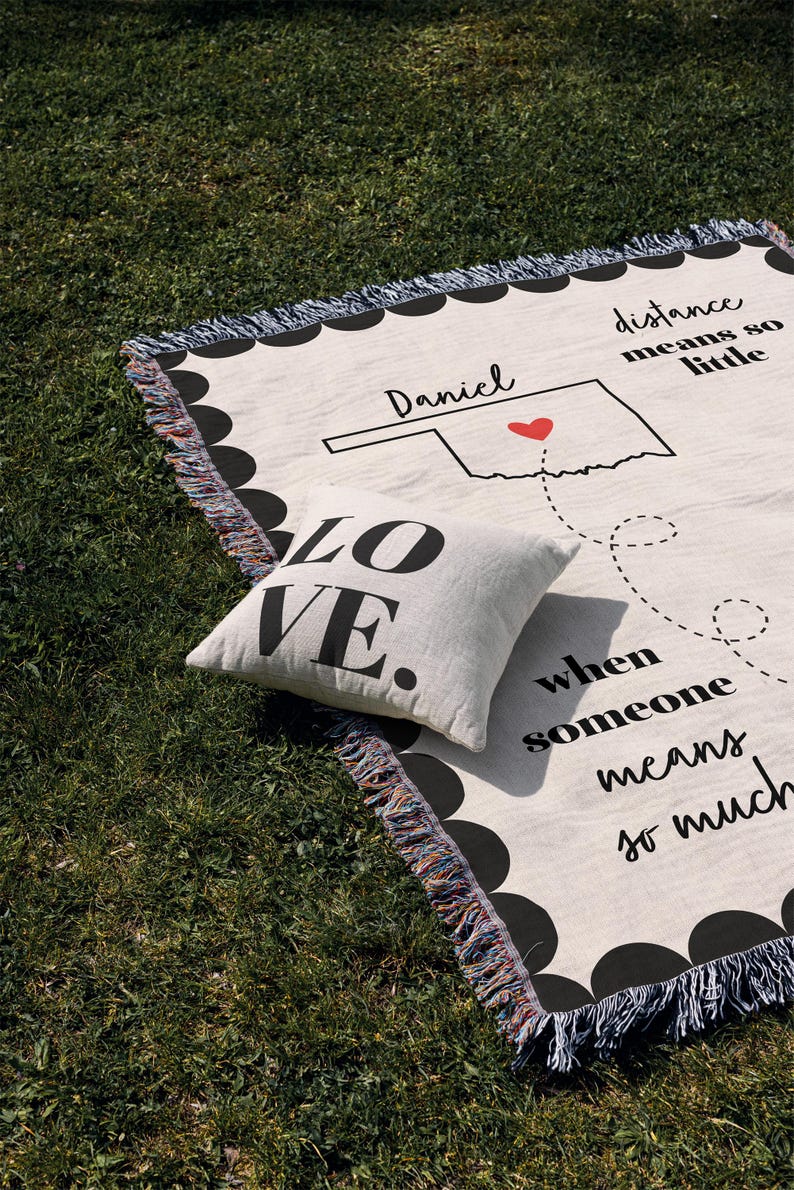 distance
means so
little
Daniel
LO
VE.
when
someone
means
so much